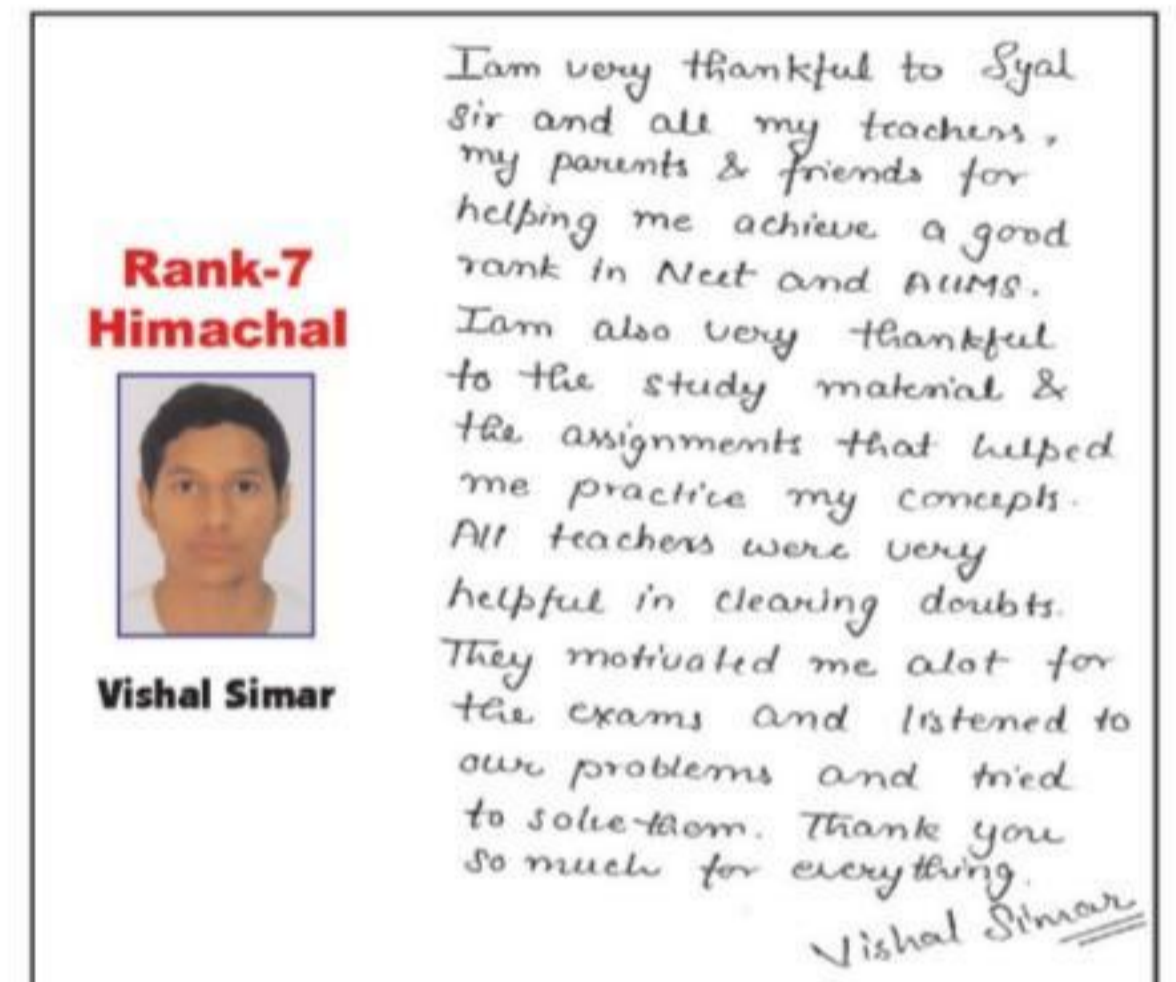 Rank-7
Himachal
Vishal Simar
Iam very thankful to Syal
sir and all my teachers,
my parents & friends for
helping me achieve a good
rank in Neet and AIIMS.
Iam also very thankful
to the study material &
the assignments that helped
me practice my concepts.
All teachers were very
helpful in clearing doubts.
They motivated me alot for
the exams and listened to
our problems and tried
to solve them. Thank you
so much for everything.
Vishal Simar